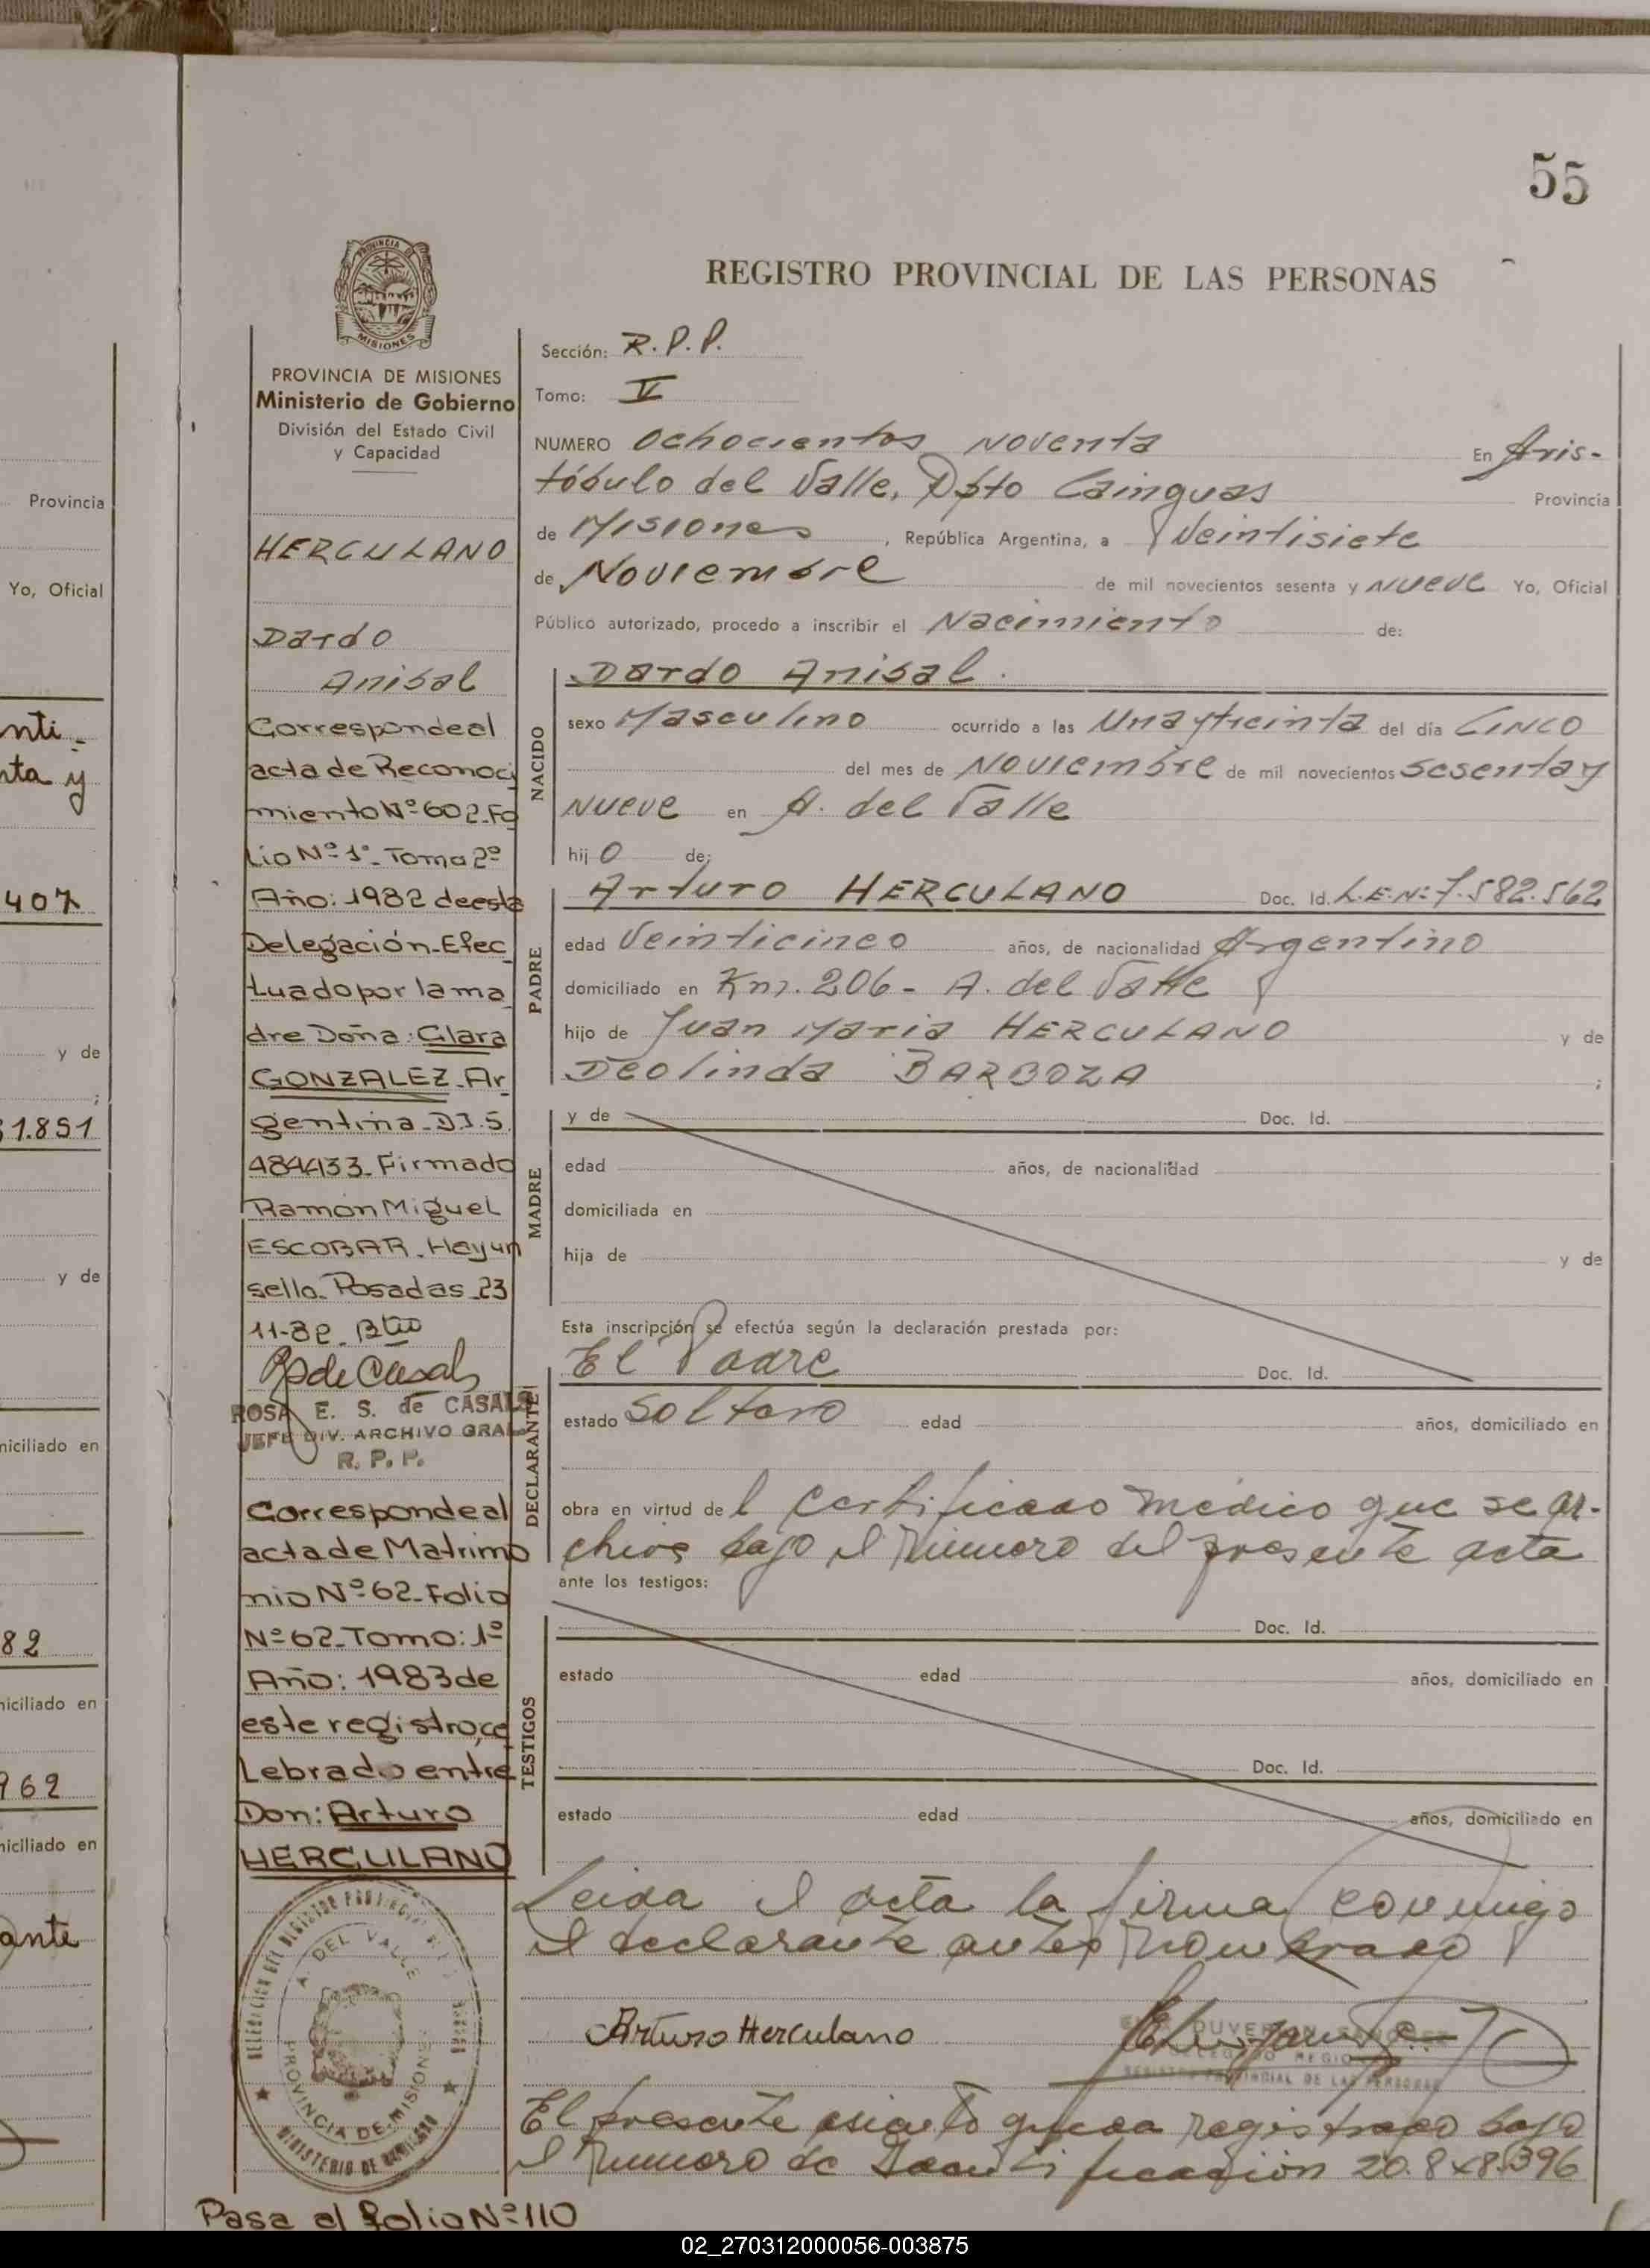 55
PROVINCIA DE MISIONES
REGISTRO PROVINCIAL DE LAS PERSONAS
PROVINCIA DE MISIONES
Ministerio de Gobierno
División del Estado Civil
y Capacidad
HERCULANO
Dardo
Anibal
Correspondeal
acta de Reconoci
miento Nº 602. Fo
lio Nº 1º. Tomo 2º
Año: 1982 de esta
Delegación. Efec
tuado por la ma
dre Doña: Clara
GONZALEZ. Ar
gentina. D.I. 5.
484433. Firmado
Ramón Miguel
ESCOBAR. Hay un
sello. Posadas. 23
11-82.
ROSA E. S. de CASALS
JEFE DIV. ARCHIVO GRAL
R. P. P.
Correspondeal
acta de Matrimo
nio Nº 62. Folio
Nº 62. Tomo: 1º
Año: 1983 de
este registro, ce
lebrado entre
Don: Arturo
HERCULANO
A. DEL VALLE
PROVINCIA DE MISIONES
Pasa al folio Nº 110
Sección: R.P.P.
Tomo: V
NUMERO ochocientos noventa En Aris-
tóbulo del Valle, Dpto Cainguas Provincia
de Misiones, República Argentina, a Veintisiete
de Noviembre de mil novecientos sesenta y nueve Yo, Oficial
Público autorizado, procedo a inscribir el Nacimiento de:
NACIDO
Dardo Anibal.
sexo Masculino ocurrido a las Una y treinta del día CINCO
del mes de Noviembre de mil novecientos sesenta y
nueve en A. del Valle
hijo de:
PADRE
Arturo HERCULANO Doc. Id. L.E.Nº 7.582.562
edad Veinticinco años, de nacionalidad Argentino
domiciliado en Km. 206- A. del Valle
hijo de Juan Maria HERCULANO y de
Deolinda BARBOZA ;
MADRE
y de Doc. Id.
edad años, de nacionalidad
domiciliada en
hija de y de
Esta inscripción se efectúa según la declaración prestada por:
DECLARANTE
El Padre Doc. Id.
estado soltero edad años, domiciliado en
obra en virtud del certificado médico que se ar-
chiva bajo el número del presente acta
ante los testigos:
TESTIGOS
Doc. Id.
estado edad años, domiciliado en
Doc. Id.
estado edad años, domiciliado en
Leida el acta la firma conmigo
el declarante antes nombrado
Arturo Herculano
El presente asiento queda registrado bajo
el número de Identificación
Provincia
Yo, Oficial
nti-
nta y
407
y de
;
31.851
y de
niciliado en
82
niciliado en
962
niciliado en
ante
02_270312000056-003875